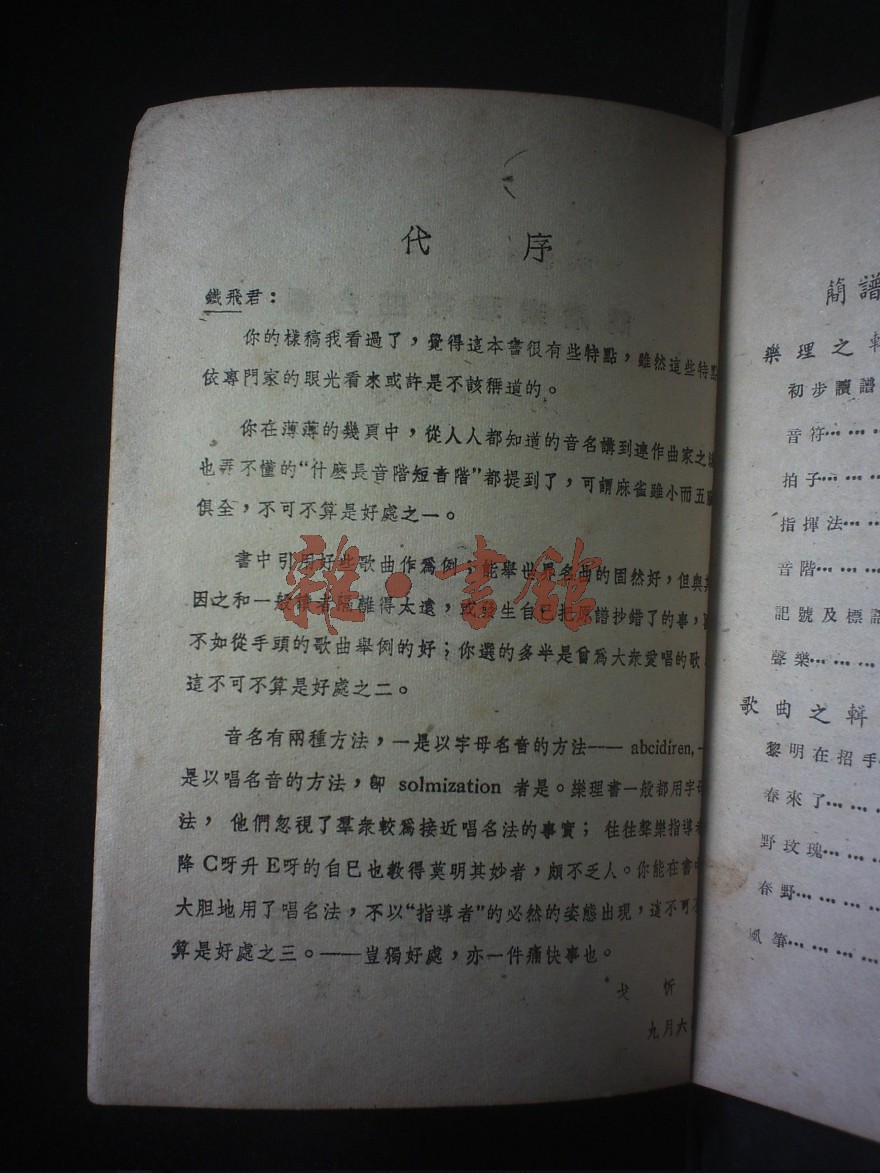 代 序
鐵飛君：
你的樣稿我看過了，覺得這本書很有些特點，雖然這些特點
依專門家的眼光看來或許是不該稱道的。
你在薄薄的幾頁中，從人人都知道的音名講到連作曲家之
也弄不懂的“什麽長音階短音階”都提到了，可謂麻雀雖小而五
俱全，不可不算是好處之一。
書中引用好些歌曲作爲例，能舉世界名曲的固然好，但與其
因之和一般讀者隔離得太遠，或發生自己把原譜抄錯了的事，
不如從手頭的歌曲舉例的好；你選的多半是曾爲大衆愛唱的歌，
這不可不算是好處之二。
音名有兩種方法，一是以字母名音的方法—— abcidiren,一
是以唱名音的方法，卽 solmization 者是。樂理書一般都用字母
法， 他們忽視了羣衆較爲接近唱名法的事實； 往往聲樂指導者
降C呀升E呀的自已也教得莫明其妙者，頗不乏人。你能在書中
大胆地用了唱名法，不以“指導者”的必然的姿態出現，這不可不
算是好處之三。——豈獨好處，亦一件痛快事也。
戈 忻
九月六
簡譜
樂理之輯
初步讀譜
音符⋯⋯
拍子⋯⋯
指揮法⋯
音階⋯⋯
記號及標語
聲樂⋯⋯
歌曲之輯
黎明在招手
春來了⋯⋯
野玫瑰⋯⋯
春野⋯⋯
風箏⋯⋯
雜·書館